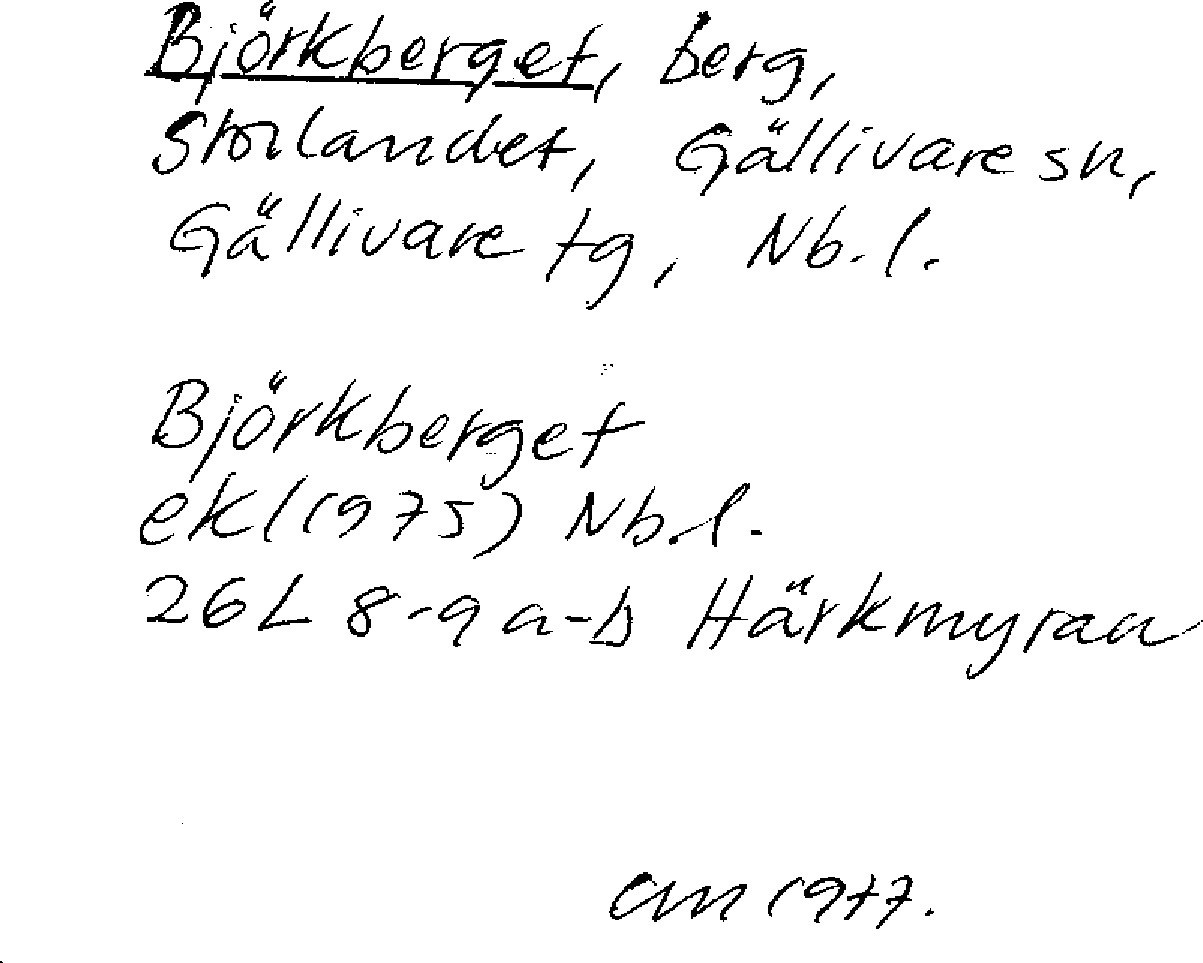 Björkberget, berg,
Storlandet, Gällivare sn,
Gällivare tg, Nb.l.
Björkberget
ek(1975) Nb.l.
26L 8-9 a-b Härkmyran
CM 1977.